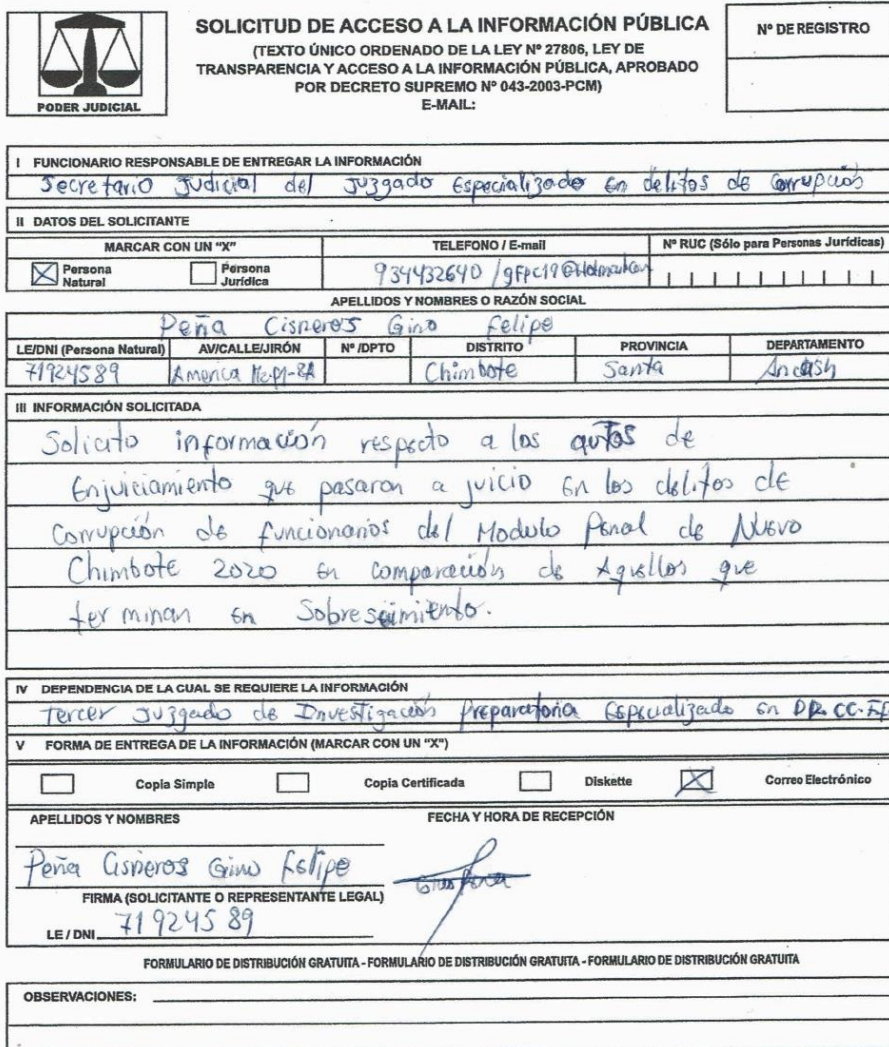 PODER JUDICIAL
SOLICITUD DE ACCESO A LA INFORMACIÓN PÚBLICA
(TEXTO ÚNICO ORDENADO DE LA LEY Nº 27806, LEY DE
TRANSPARENCIA Y ACCESO A LA INFORMACIÓN PÚBLICA, APROBADO
POR DECRETO SUPREMO Nº 043-2003-PCM)
E-MAIL:
Nº DE REGISTRO
I FUNCIONARIO RESPONSABLE DE ENTREGAR LA INFORMACIÓN
Secretario Judicial del Juzgado Especializado en delitos de corrupción
II DATOS DEL SOLICITANTE
MARCAR CON UN "X" TELEFONO / E-mail Nº RUC (Sólo para Personas Jurídicas)
X Persona Natural Persona Jurídica 934432640 / gfpc19@Hotmail.com
APELLIDOS Y NOMBRES O RAZÓN SOCIAL
Peña Cisneros Gino Felipe
LE/DNI (Persona Natural) AV/CALLE/JIRÓN Nº /DPTO DISTRITO PROVINCIA DEPARTAMENTO
71924589 America Chimbote Santa Ancash
III INFORMACIÓN SOLICITADA
Solicito información respecto a los autos de
Enjuiciamiento que pasaron a juicio en los delitos de
Corrupción de funcionarios del Modulo Penal de Nuevo
Chimbote 2020 en comparación de Aquellos que
terminan en Sobreseimiento.
IV DEPENDENCIA DE LA CUAL SE REQUIERE LA INFORMACIÓN
Tercer Juzgado de Investigación Preparatoria Especializado en
V FORMA DE ENTREGA DE LA INFORMACIÓN (MARCAR CON UN "X")
Copia Simple Copia Certificada Diskette X Correo Electrónico
APELLIDOS Y NOMBRES FECHA Y HORA DE RECEPCIÓN
Peña Cisneros Gino Felipe
FIRMA (SOLICITANTE O REPRESENTANTE LEGAL)
LE / DNI 71924589
FORMULARIO DE DISTRIBUCIÓN GRATUITA - FORMULARIO DE DISTRIBUCIÓN GRATUITA - FORMULARIO DE DISTRIBUCIÓN GRATUITA
OBSERVACIONES: